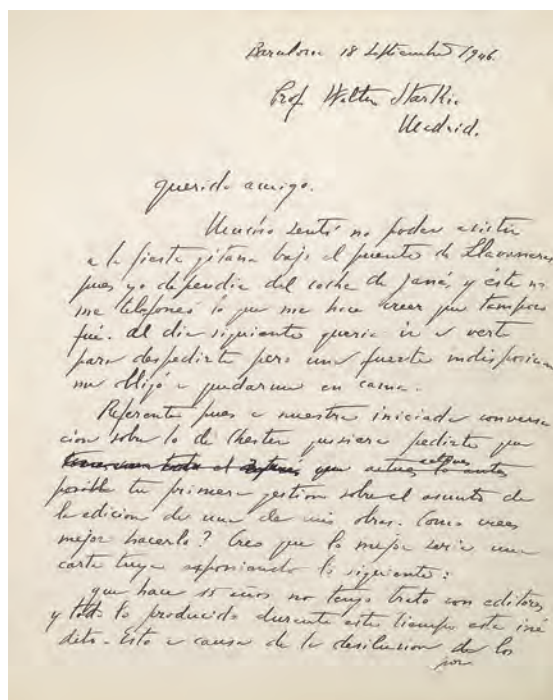 Barcelona 18 Septiembre 1946.
Prof. Walter Starkie
Madrid.
querido amigo.
Mucho sentí no poder asistir
a la fiesta gitana bajo el puente de Llavaneras
pues yo dependia del coche de Janés y éste no
me telefoneó lo que me hace creer que tampoco
fué. Al dia siguiente queria ir a verte
para despedirte pero una fuerte indisposicion
me obligó a quedarme en cama.
Referente pues a nuestra iniciada conversa
ción sobre lo de Chester quisiera pedirte que
el interés que actues lo antes
posible tu primera gestion sobre el asunto de
la edicion de una de mis obras. Como crees
mejor hacerlo? Creo que lo mejor seria una
carta tuya exponiendo lo siguiente:
que hace 15 años no tengo trato con editores
y todo lo producido durante este tiempo esta iné
dito. Esto a causa de la desilucion de los
por